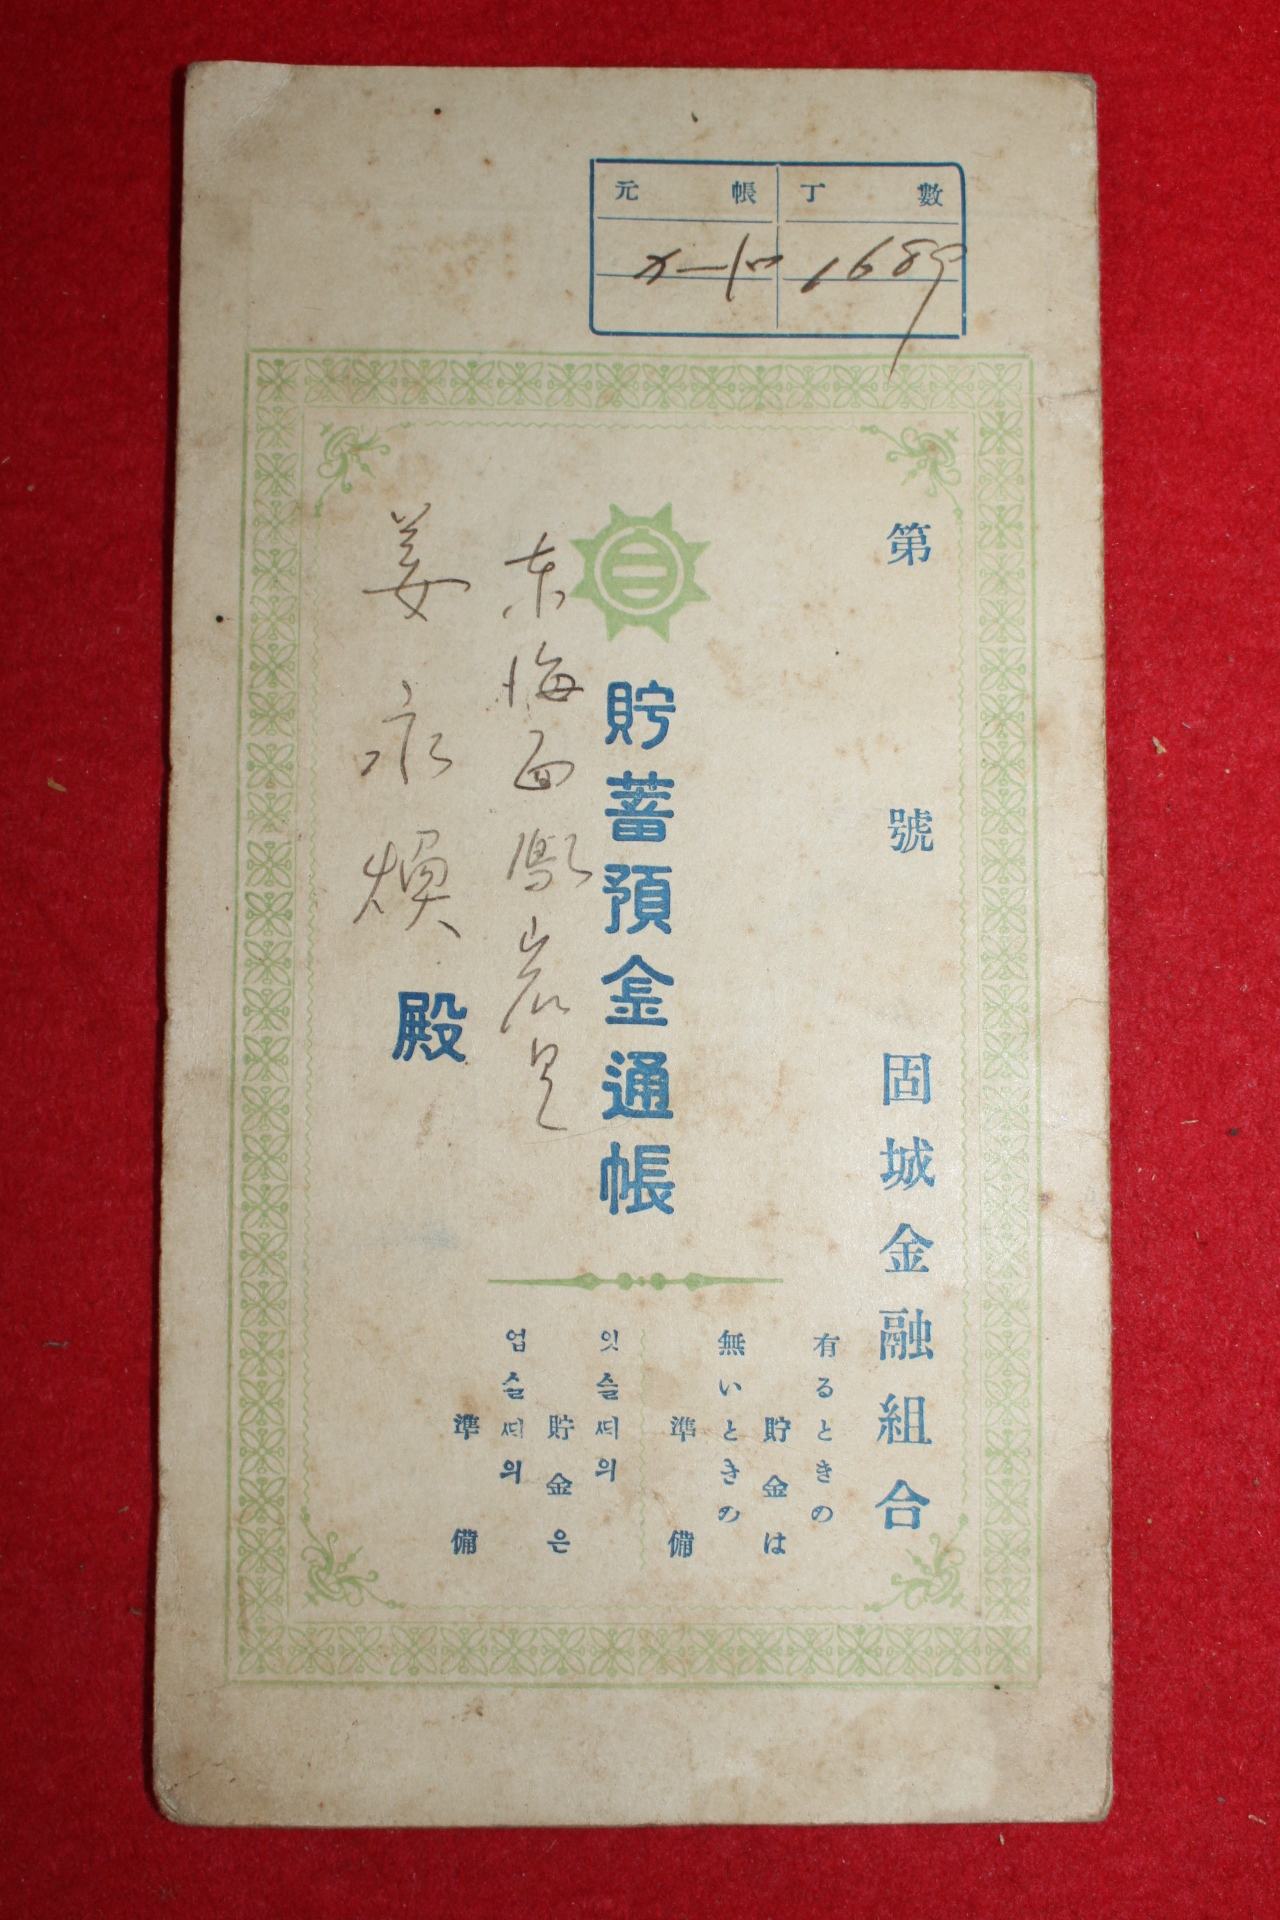 元帳 丁數
1689
第 號 固城金融組合
有るときの
貯金は
無いときの
準備
잇슬ᄯᅢ의
貯金은
업슬ᄯᅢ의
準備
貯蓄預金通帳
東海面鳳岩里
姜永煥殿